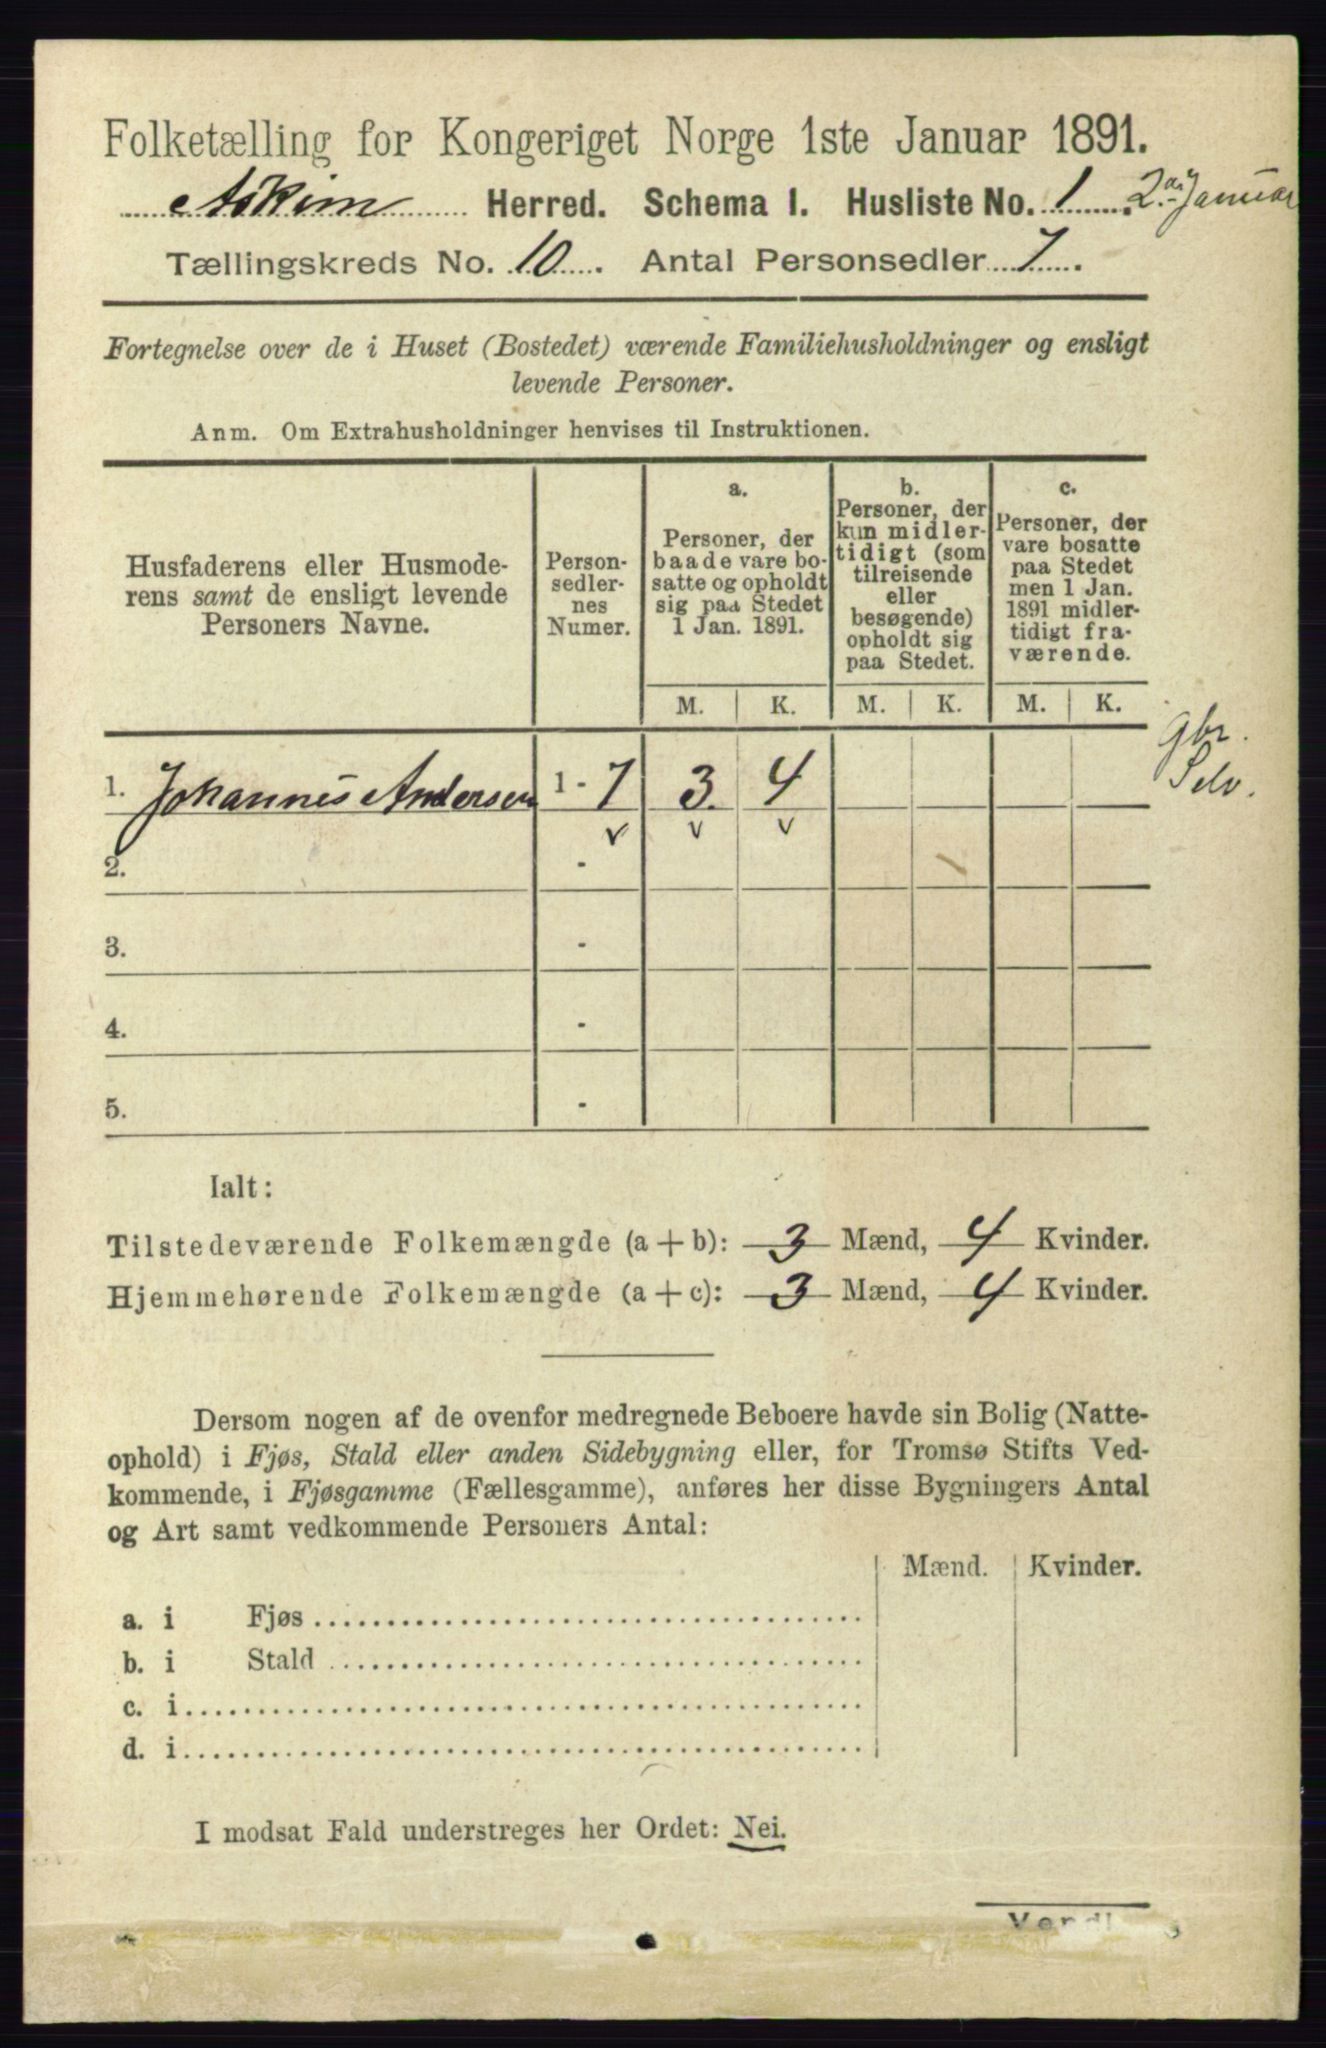 Folketælling for Kongeriget Norge 1ste Januar 1891.
Askim Herred. Schema I. Husliste No. 1. 2den Januar
Tællingskreds No. 10. Antal Personsedler 7.
Fortegnelse over de i Huset (Bostedet) værende Familiehusholdninger og ensligt
levende Personer.
Anm. Om Extrahusholdninger henvises til Instruktionen.
Husfaderens eller Husmode-
rens samt de ensligt levende
Personers Navne.
Person-
sedler-
nes
Numer.
a.
Personer, der
baade vare bo-
satte og opholdt
sig paa Stedet
1 Jan. 1891.
b.
Personer, der
kun midler-
tidigt (som
tilreisende
eller
besøgende)
opholdt sig
paa Stedet.
c.
Personer, der
vare bosatte
paa Stedet
men 1 Jan.
1891 midler-
tidigt fra-
værende.
M. K. M. K. M. K.
Gbr.
Selv.
1. Johannes Andersen 1 - 7 3. 4
v v v
2. -
3. -
4. -
5. -
Ialt:
Tilstedeværende Folkemængde (a + b): 3 Mænd, 4 Kvinder.
Hjemmehørende Folkemængde (a + c): 3 Mænd, 4 Kvinder.
Dersom nogen af de ovenfor medregnede Beboere havde sin Bolig (Natte-
ophold) i Fjøs, Stald eller anden Sidebygning eller, for Tromsø Stifts Ved-
kommende, i Fjøsgamme (Fællesgamme), anføres her disse Bygningers Antal
og Art samt vedkommende Personers Antal:
Mænd. Kvinder.
a. i Fjøs
b. i Stald
c. i
d. i
I modsat Fald understreges her Ordet: Nei.
Vend!